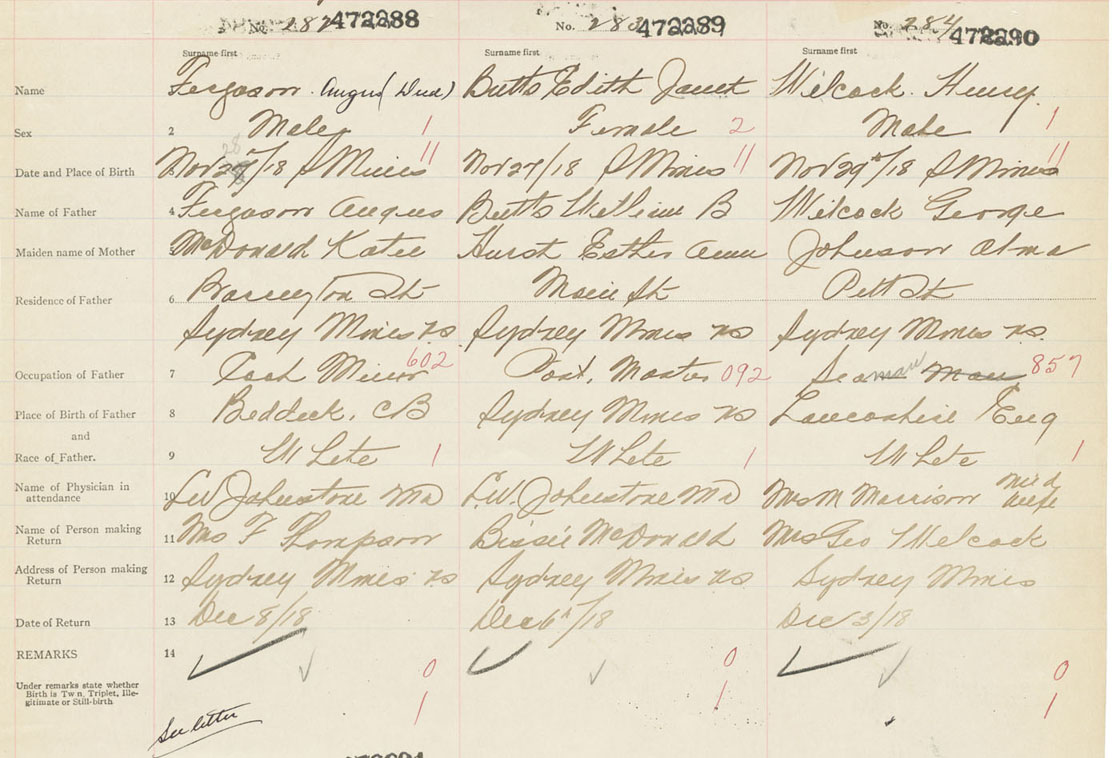 No. 282 472288 No. 283 472289 No. 284 472290
Surname first Surname first Surname first
Name Ferguson Angus (Dud) Butts Edith Janet Wilcock Henry
Sex 2 Male 1 Female 2 Male 1
28
Date and Place of Birth Nov /18 S Mines 11 Nov 27/18 S Mines 11 Nov 29th/18 S Mines 11
Name of Father 4 Ferguson Angus Butts William B Wilcock George
Maiden name of Mother McDonald Katie Hurst Esther Ann Johnson Alma
Residence of Father 6 St Main St Pitt St
Sydney Mines NS Sydney Mines NS Sydney Mines NS.
Occupation of Father 7 Coal Miner 602 Post Master 092 Seaman Man 857
Place of Birth of Father 8 Beddeck, CB Sydney Mines NS Lancashire Eng
and
Race of Father. 9 White 1 White 1 White 1
Name of Physician in attendance 10 LW Johnstone MD L.W. Johnstone MD Mrs M Morrison Mid Wife
Name of Person making Return 11 Mrs F Thompson Bissie McDonald Mrs Geo Wilcock
Address of Person making Return 12 Sydney Mines NS Sydney Mines NS Sydney Mines
Date of Return 13 Dec 8/18 Dec 6th/18 Dec 3/18
REMARKS 14
0 0 0
Under remarks state whether Birth is Twin, Triplet, Ille-
gitimate or Still-birth 1 1 1
See letter